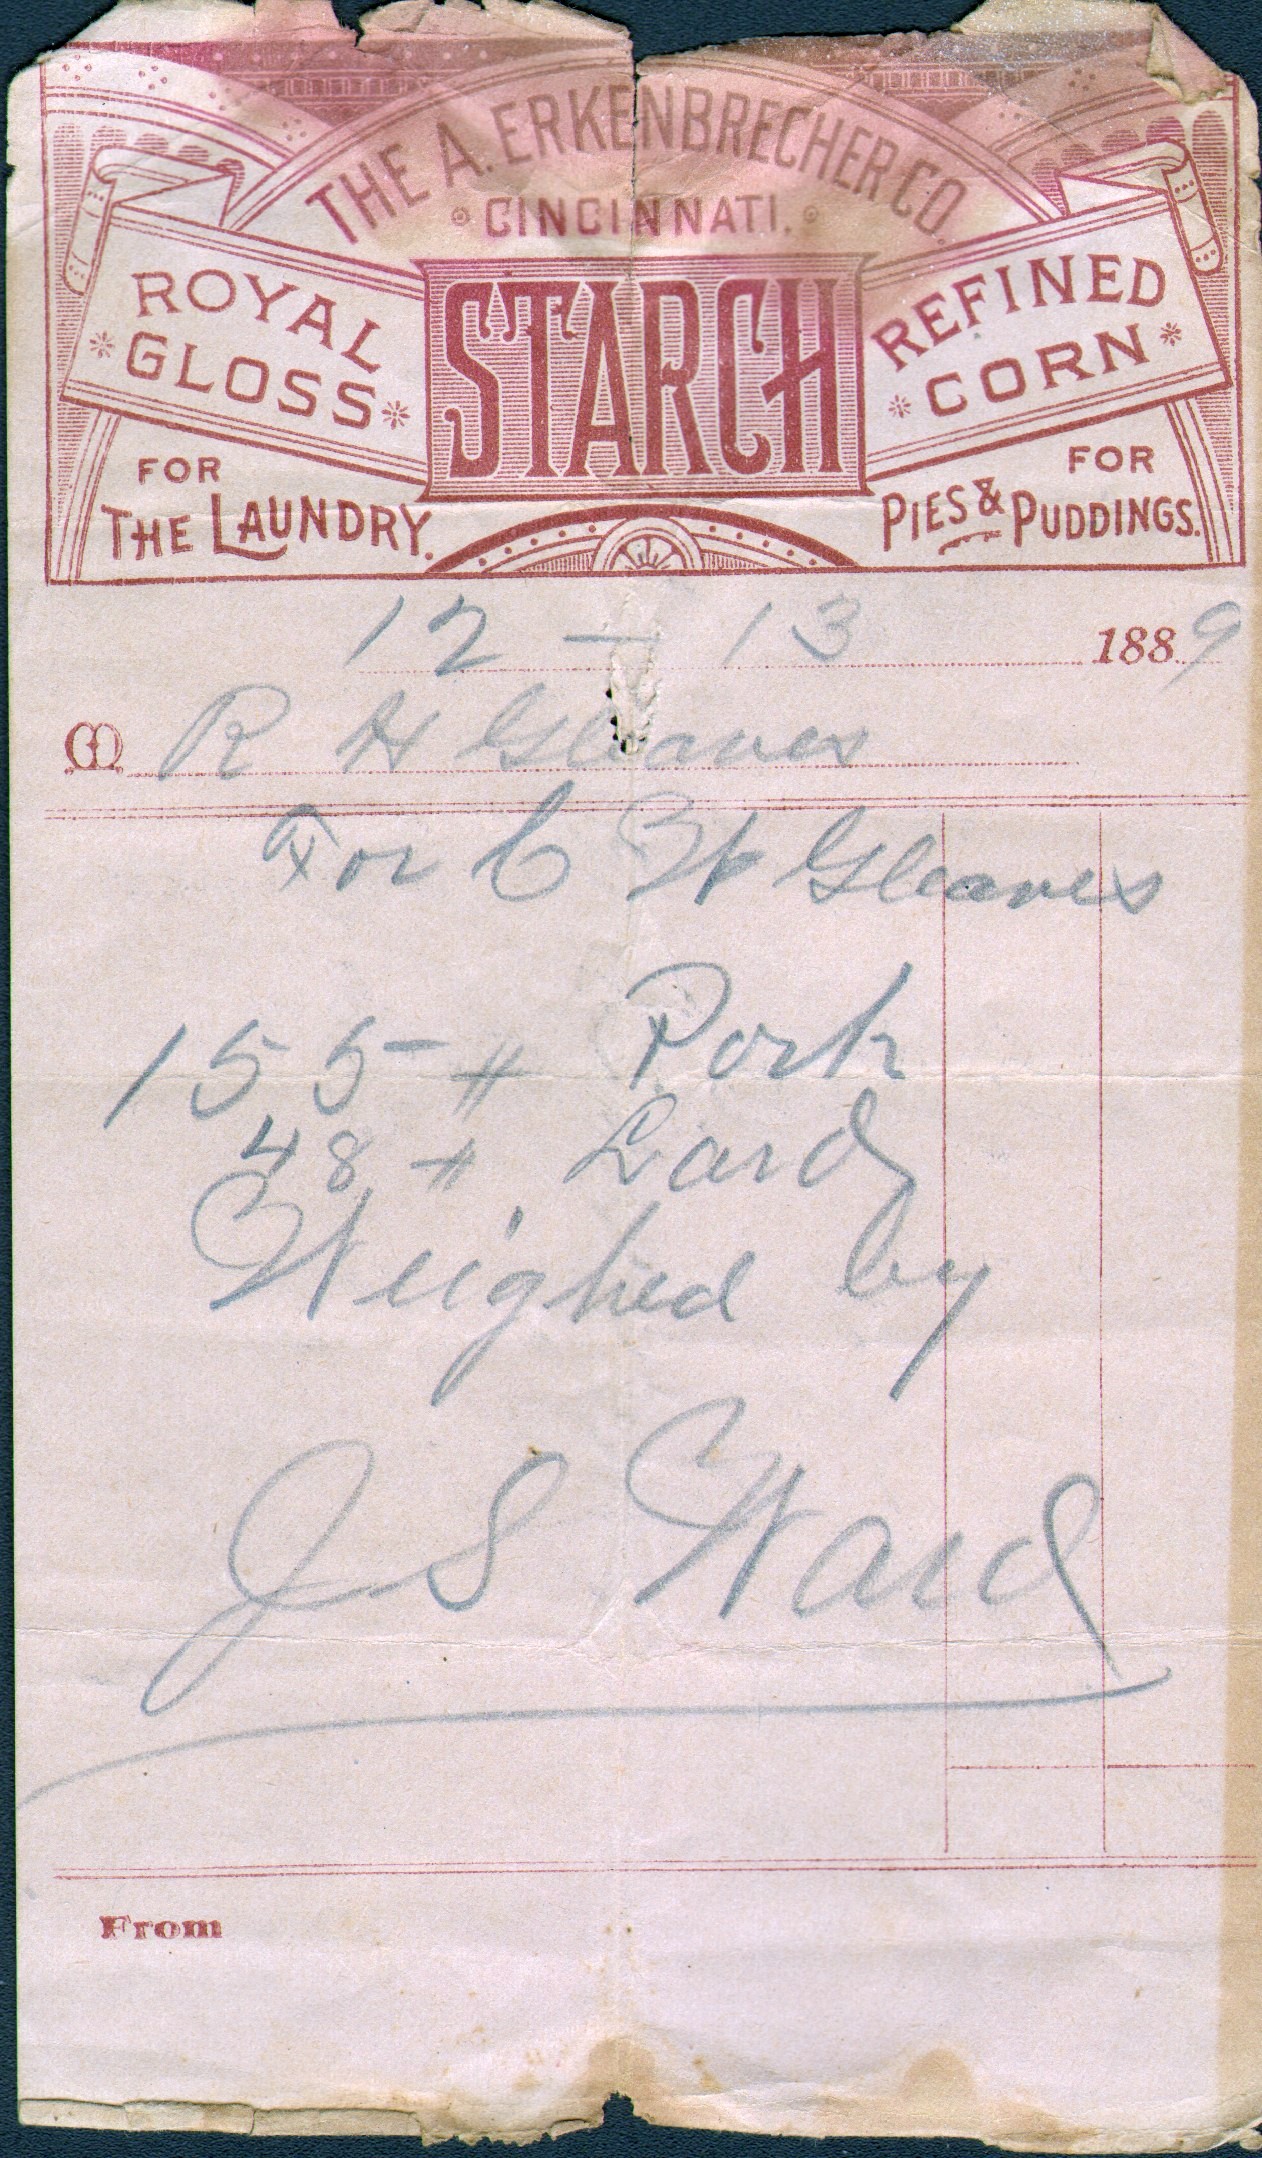 THE A. ERKENBRECHER CO.
CINCINNATI.
ROYAL
GLOSS
STARCH
REFINED
CORN
FOR
THE LAUNDRY.
FOR
PIES & PUDDINGS.
12 — 13 1889
M R H Gleaves
For C W Gleaves
155 # Pork
48 # Lard
Weighed by
J S Ward
From